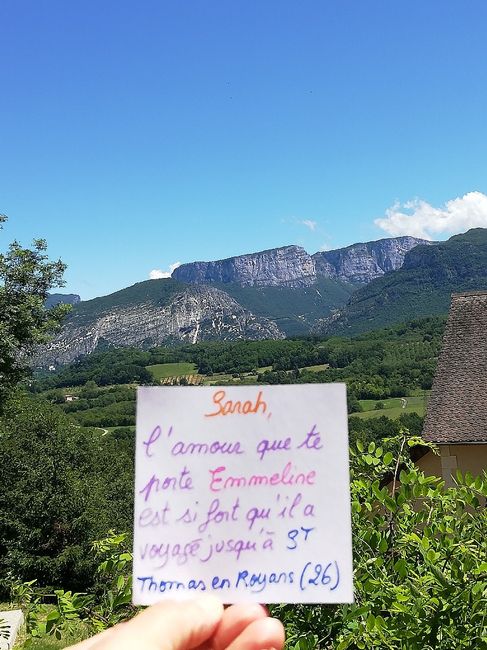 Sarah,
l'amour que te
porte Emmeline
est si fort qu'il a
voyagé jusqu'à S^T
Thomas en Royans (26)